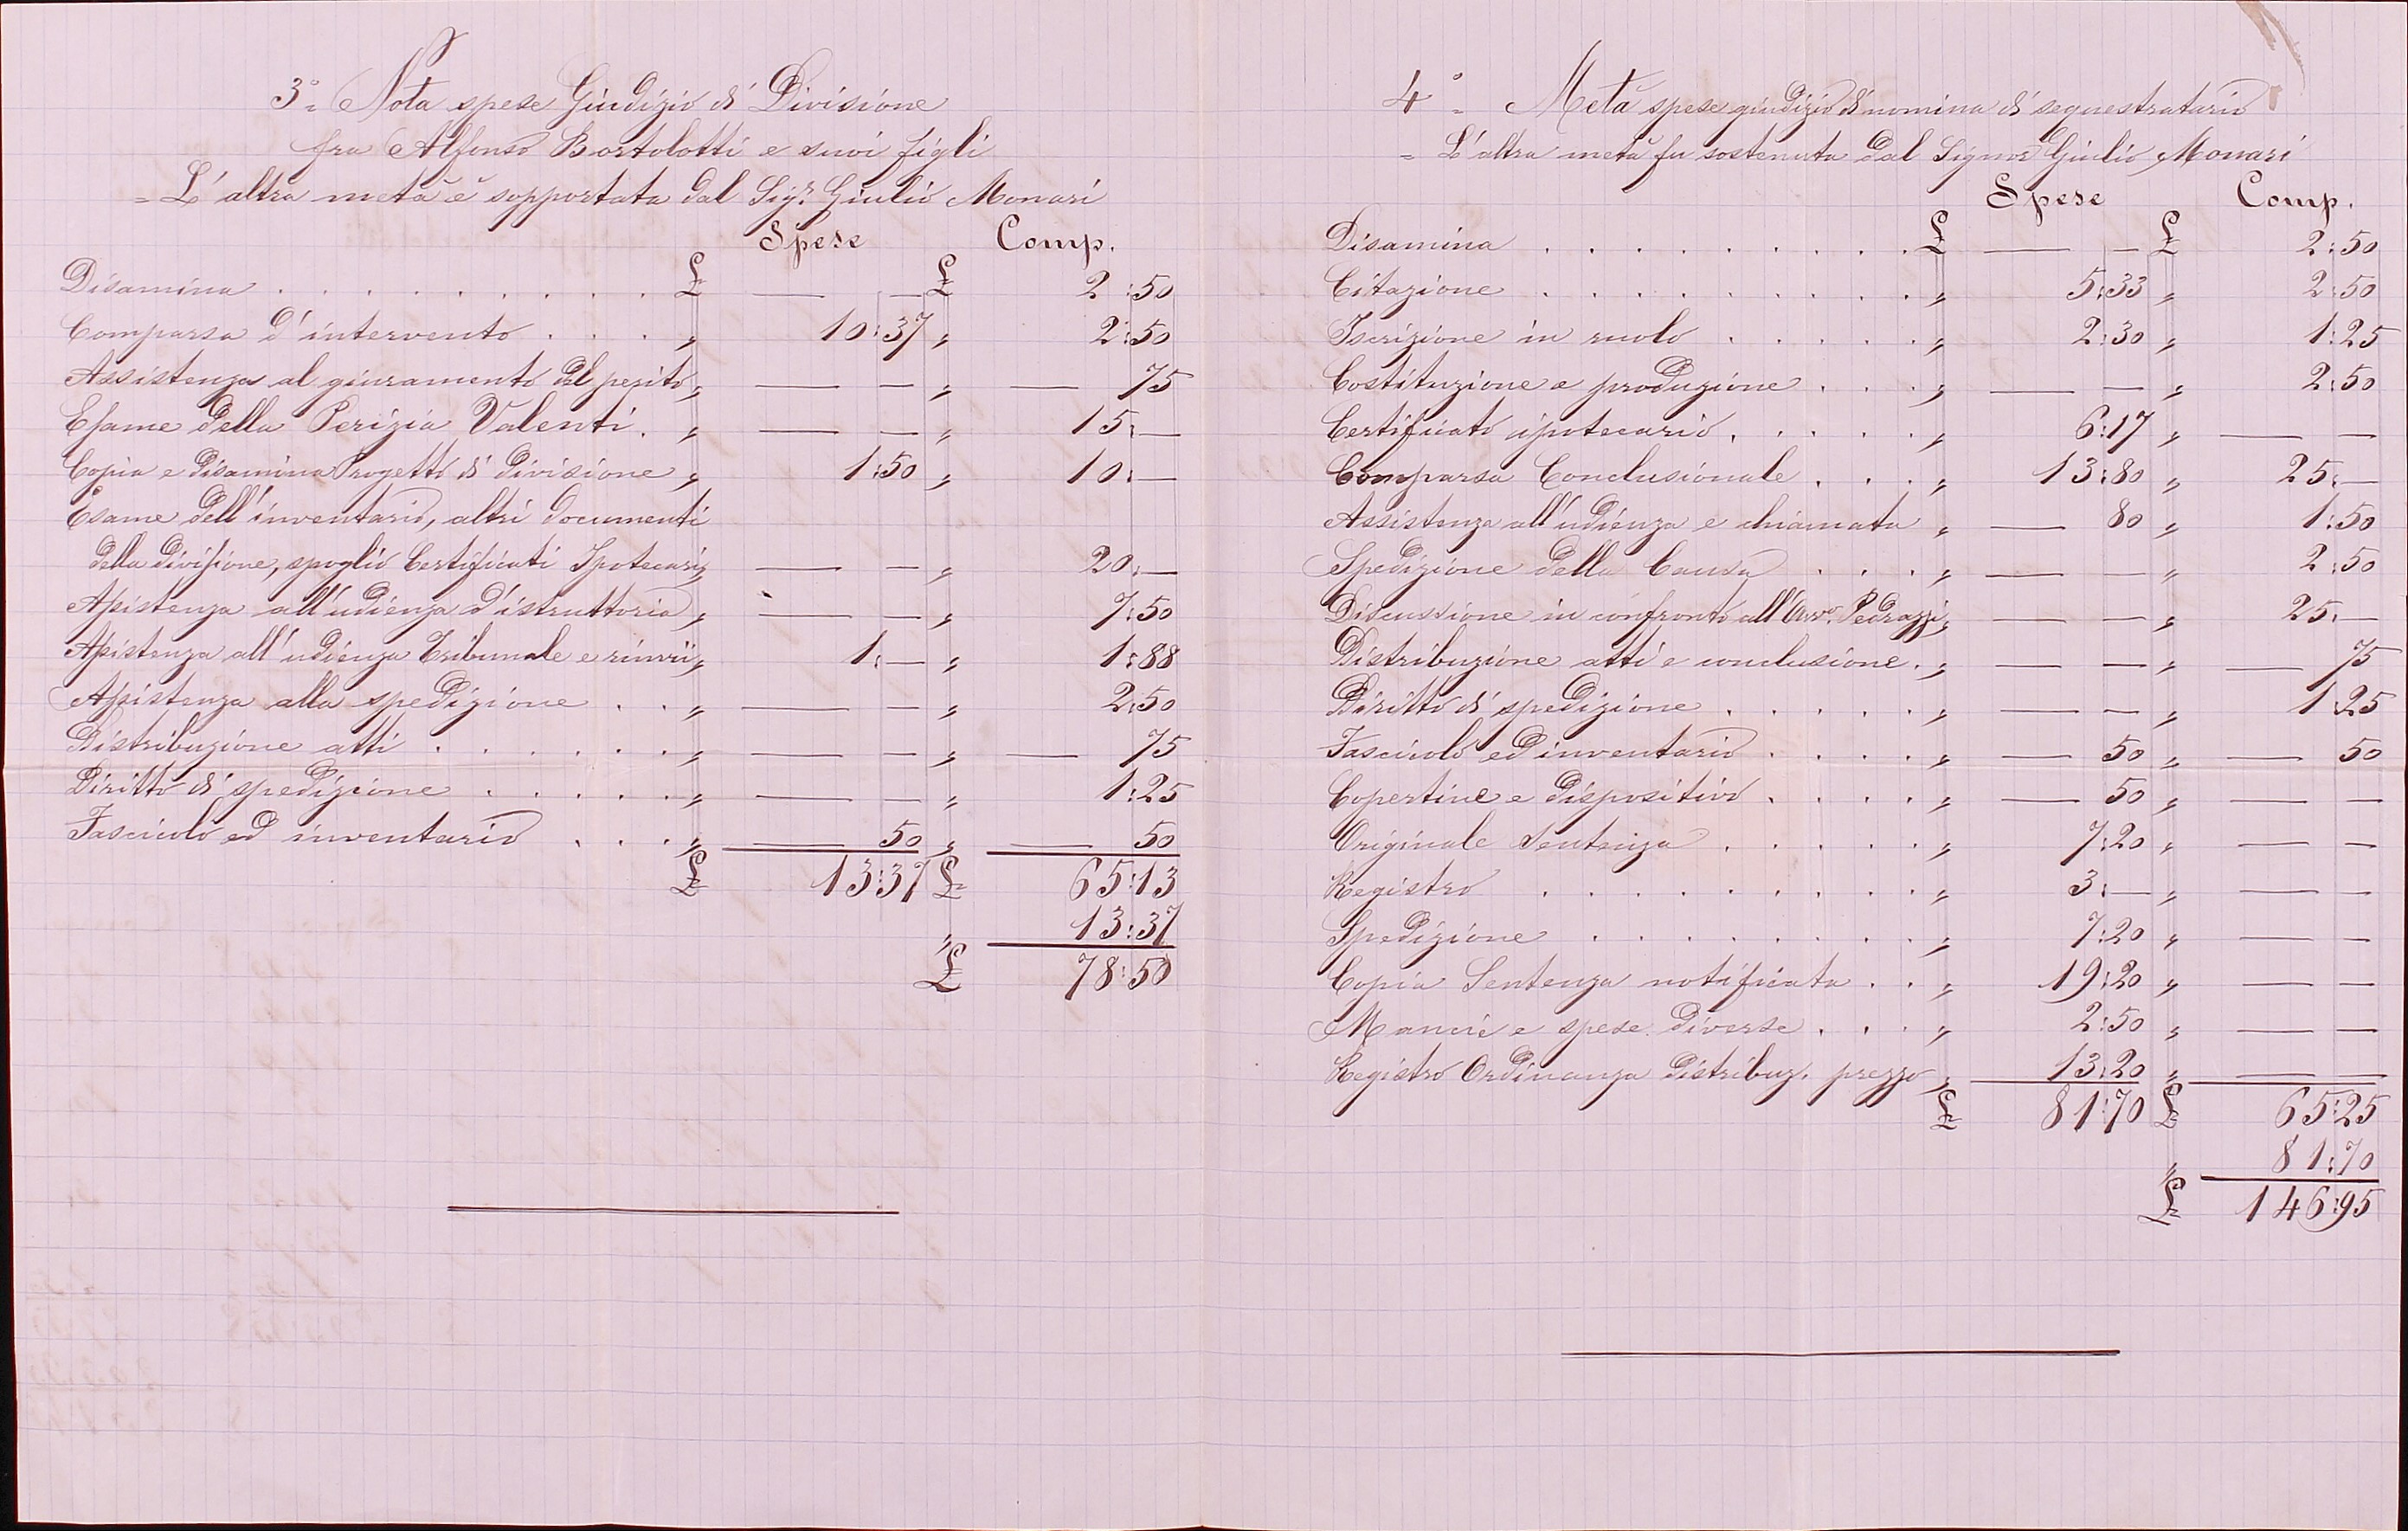 3.° = Nota spese Giudizio di Divisione
fra Alfonso Bortolotti e suoi figli
= L'altra metà è sopportata dal Sigr. Giulio Monari
Spese Comp.
Disamina . . . . . . . . . £ — — £ 2:50
Comparsa d'intervento . . . " 10:37 " 2:50
Assistenza al giuramento del perito " — — " — 75
Esame della Perizia Valenti . " — — " 15:—
Copia e disamina Progetto di divisione " 1:50 " 10:—
Esame dell'inventario, altri documenti
della divisione, spoglio Certificati Ipotecari " — — " 20:—
Assistenza all'udienza d'istruttoria " — — " 7:50
Assistenza all'udienza Tribunale e rinvii " 1:— " 1:88
Assistenza alla spedizione . . " — — " 2:50
Distribuzione atti . . . . . . " — — " — 75
Diritto di spedizione . . . . . " — — " 1:25
Fascicolo ed inventario . . . " — 50 " — 50
£ 13:37 £ 65:13
" 13:37
£ 78:50
4° = Metà spese giudizio di nomina di sequestratario
= L'altra metà fu sostenuta dal Signor Giulio Monari
Spese Comp.
Disamina . . . . . . . . . £ — — £ 2:50
Citazione . . . . . . . . . " 5:33 " 2:50
Iscrizione in ruolo . . . . . " 2:30 " 1:25
Costituzione e produzione . . . " — — " 2:50
Certificato ipotecario . . . . . " 6:17 " — —
Comparsa Conclusionale . . . " 13:80 " 25:—
Assistenza all'udienza e chiamata " — 80 " 1:50
Spedizione della Causa . . . " — — " 2:50
Discussione in confronto all'Avvo. Pedrazzi " — — " 25:—
Distribuzione atti e conclusione . " — — " — 75
Diritto di spedizione . . . . . " — — " 1:25
Fascicolo ed inventario . . . . " — 50 " — 50
Copertine e dispositivo . . . . " — 50 " — —
Originale Sentenza . . . . . " 7:20 " — —
Registro . . . . . . . . . " 3:— " — —
Spedizione . . . . . . . . " 7:20 " — —
Copia Sentenza notificata . . " 19:20 " — —
Mancie e spese diverse . . . " 2:50 " — —
Registro Ordinanza distribuz. prezzo " 13:20 " — —
£ 81:70 £ 65:25
" 81:70
£ 146:95